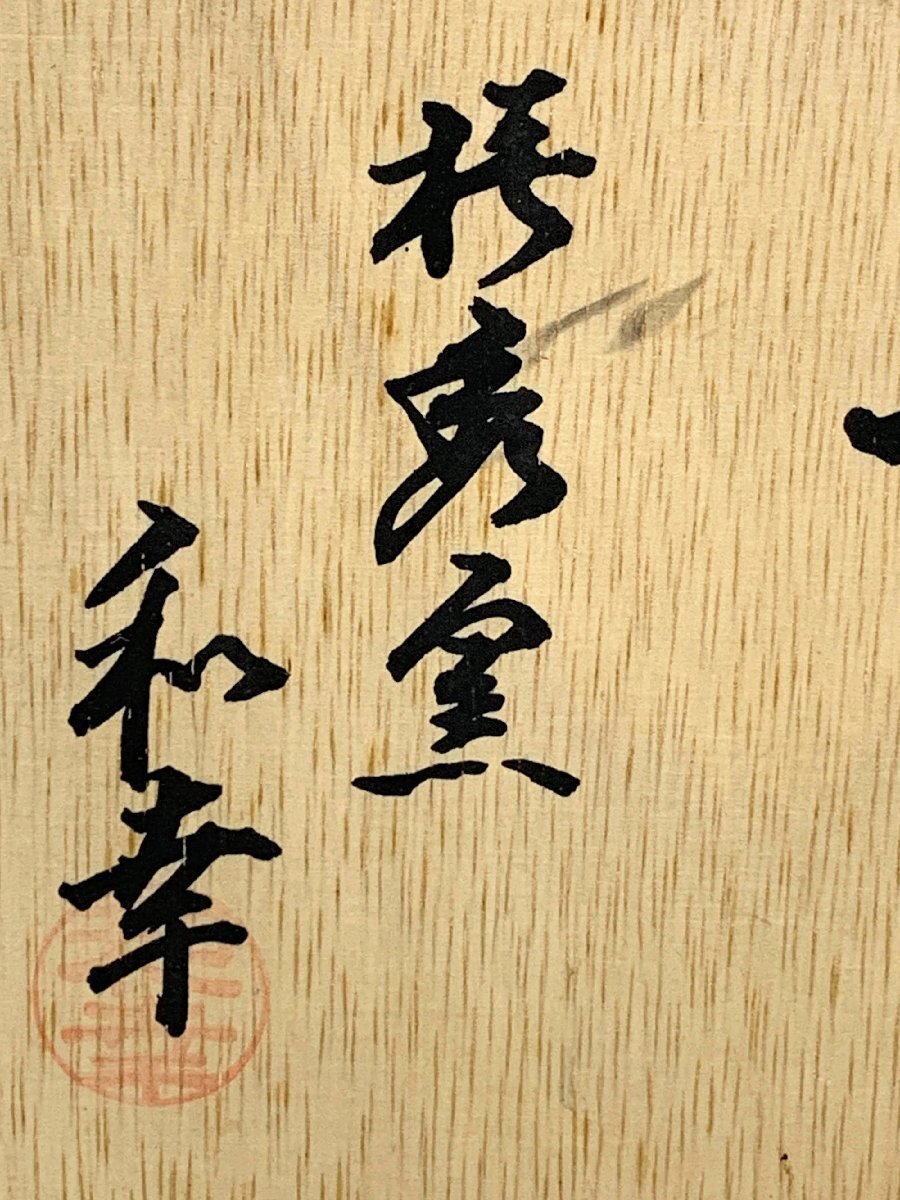 桂秀窯
和幸